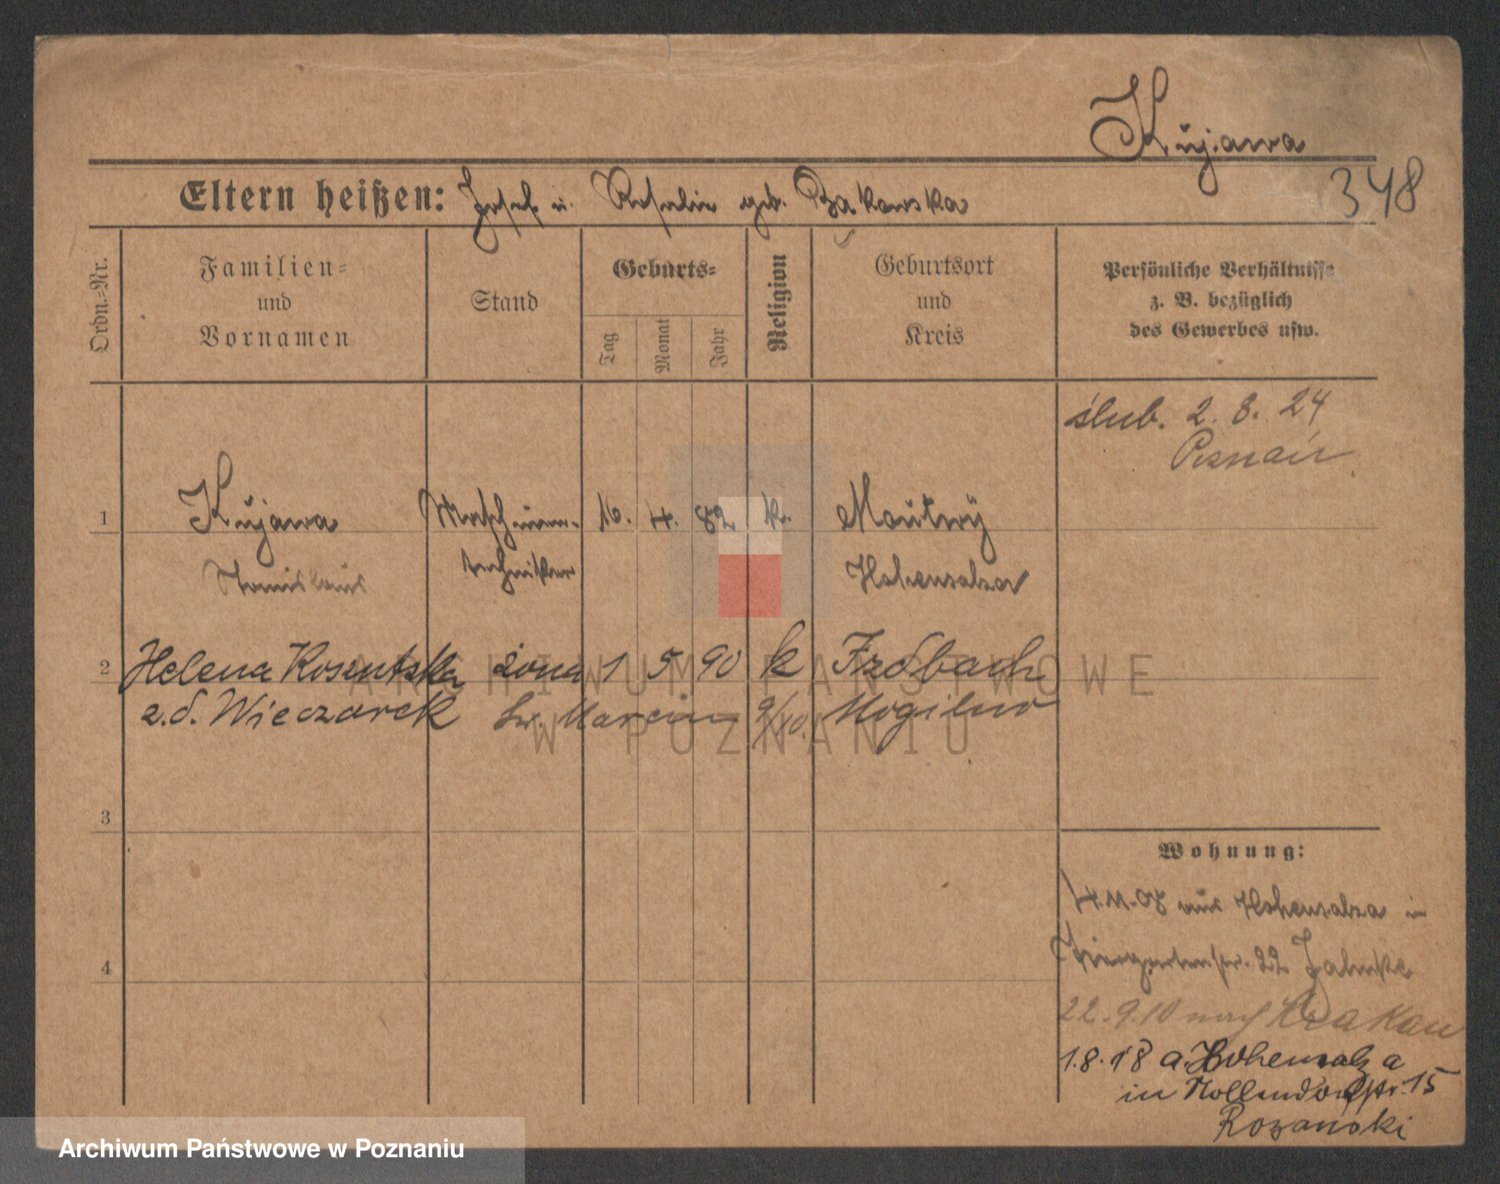 Kujawa
348
Eltern heißen: Josef u. Rosalie geb. Bąkowska
Ordn.-Nr.
Familien-
und
Vornamen
Stand
Geburts-
Tag
Monat
Jahr
Religion
Geburtsort
und
Kreis
Persönliche Verhältnisse
z. B. bezüglich
des Gewerbes usw.
ślub. 2. 8. 24
Poznań
1 Kujawa Maschinen- 16. 4. 82 k. Montwy
Stanislaus techniker Hohensalza
2 Helena żona 1 5 90 k
z.d. Wieczorek Św. Marcin 9/40. Mogilno
3
4
Wohnung:
4.11.08 aus Hohensalza in
Tiergartenstr. 22 Jahnke
22.9.10 nach Krakau
1.8.18 a. Hohensalza
in Nollendorfstr. 15
Rozanski
ARCHIWUM PAŃSTWOWE
W POZNANIU
Archiwum Państwowe w Poznaniu